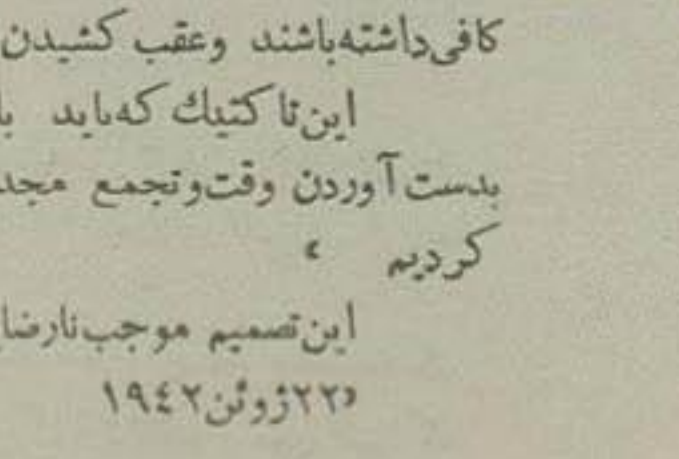 کافی‌داشته‌باشند وعقب کشیدن
این‌تا کتیك که‌باید با
بدست آوردن وقت‌وتجمع مجد
کردیم »
این‌تصمیم موجب‌نارضا
«۲۲ژوئن۱۹٤۲